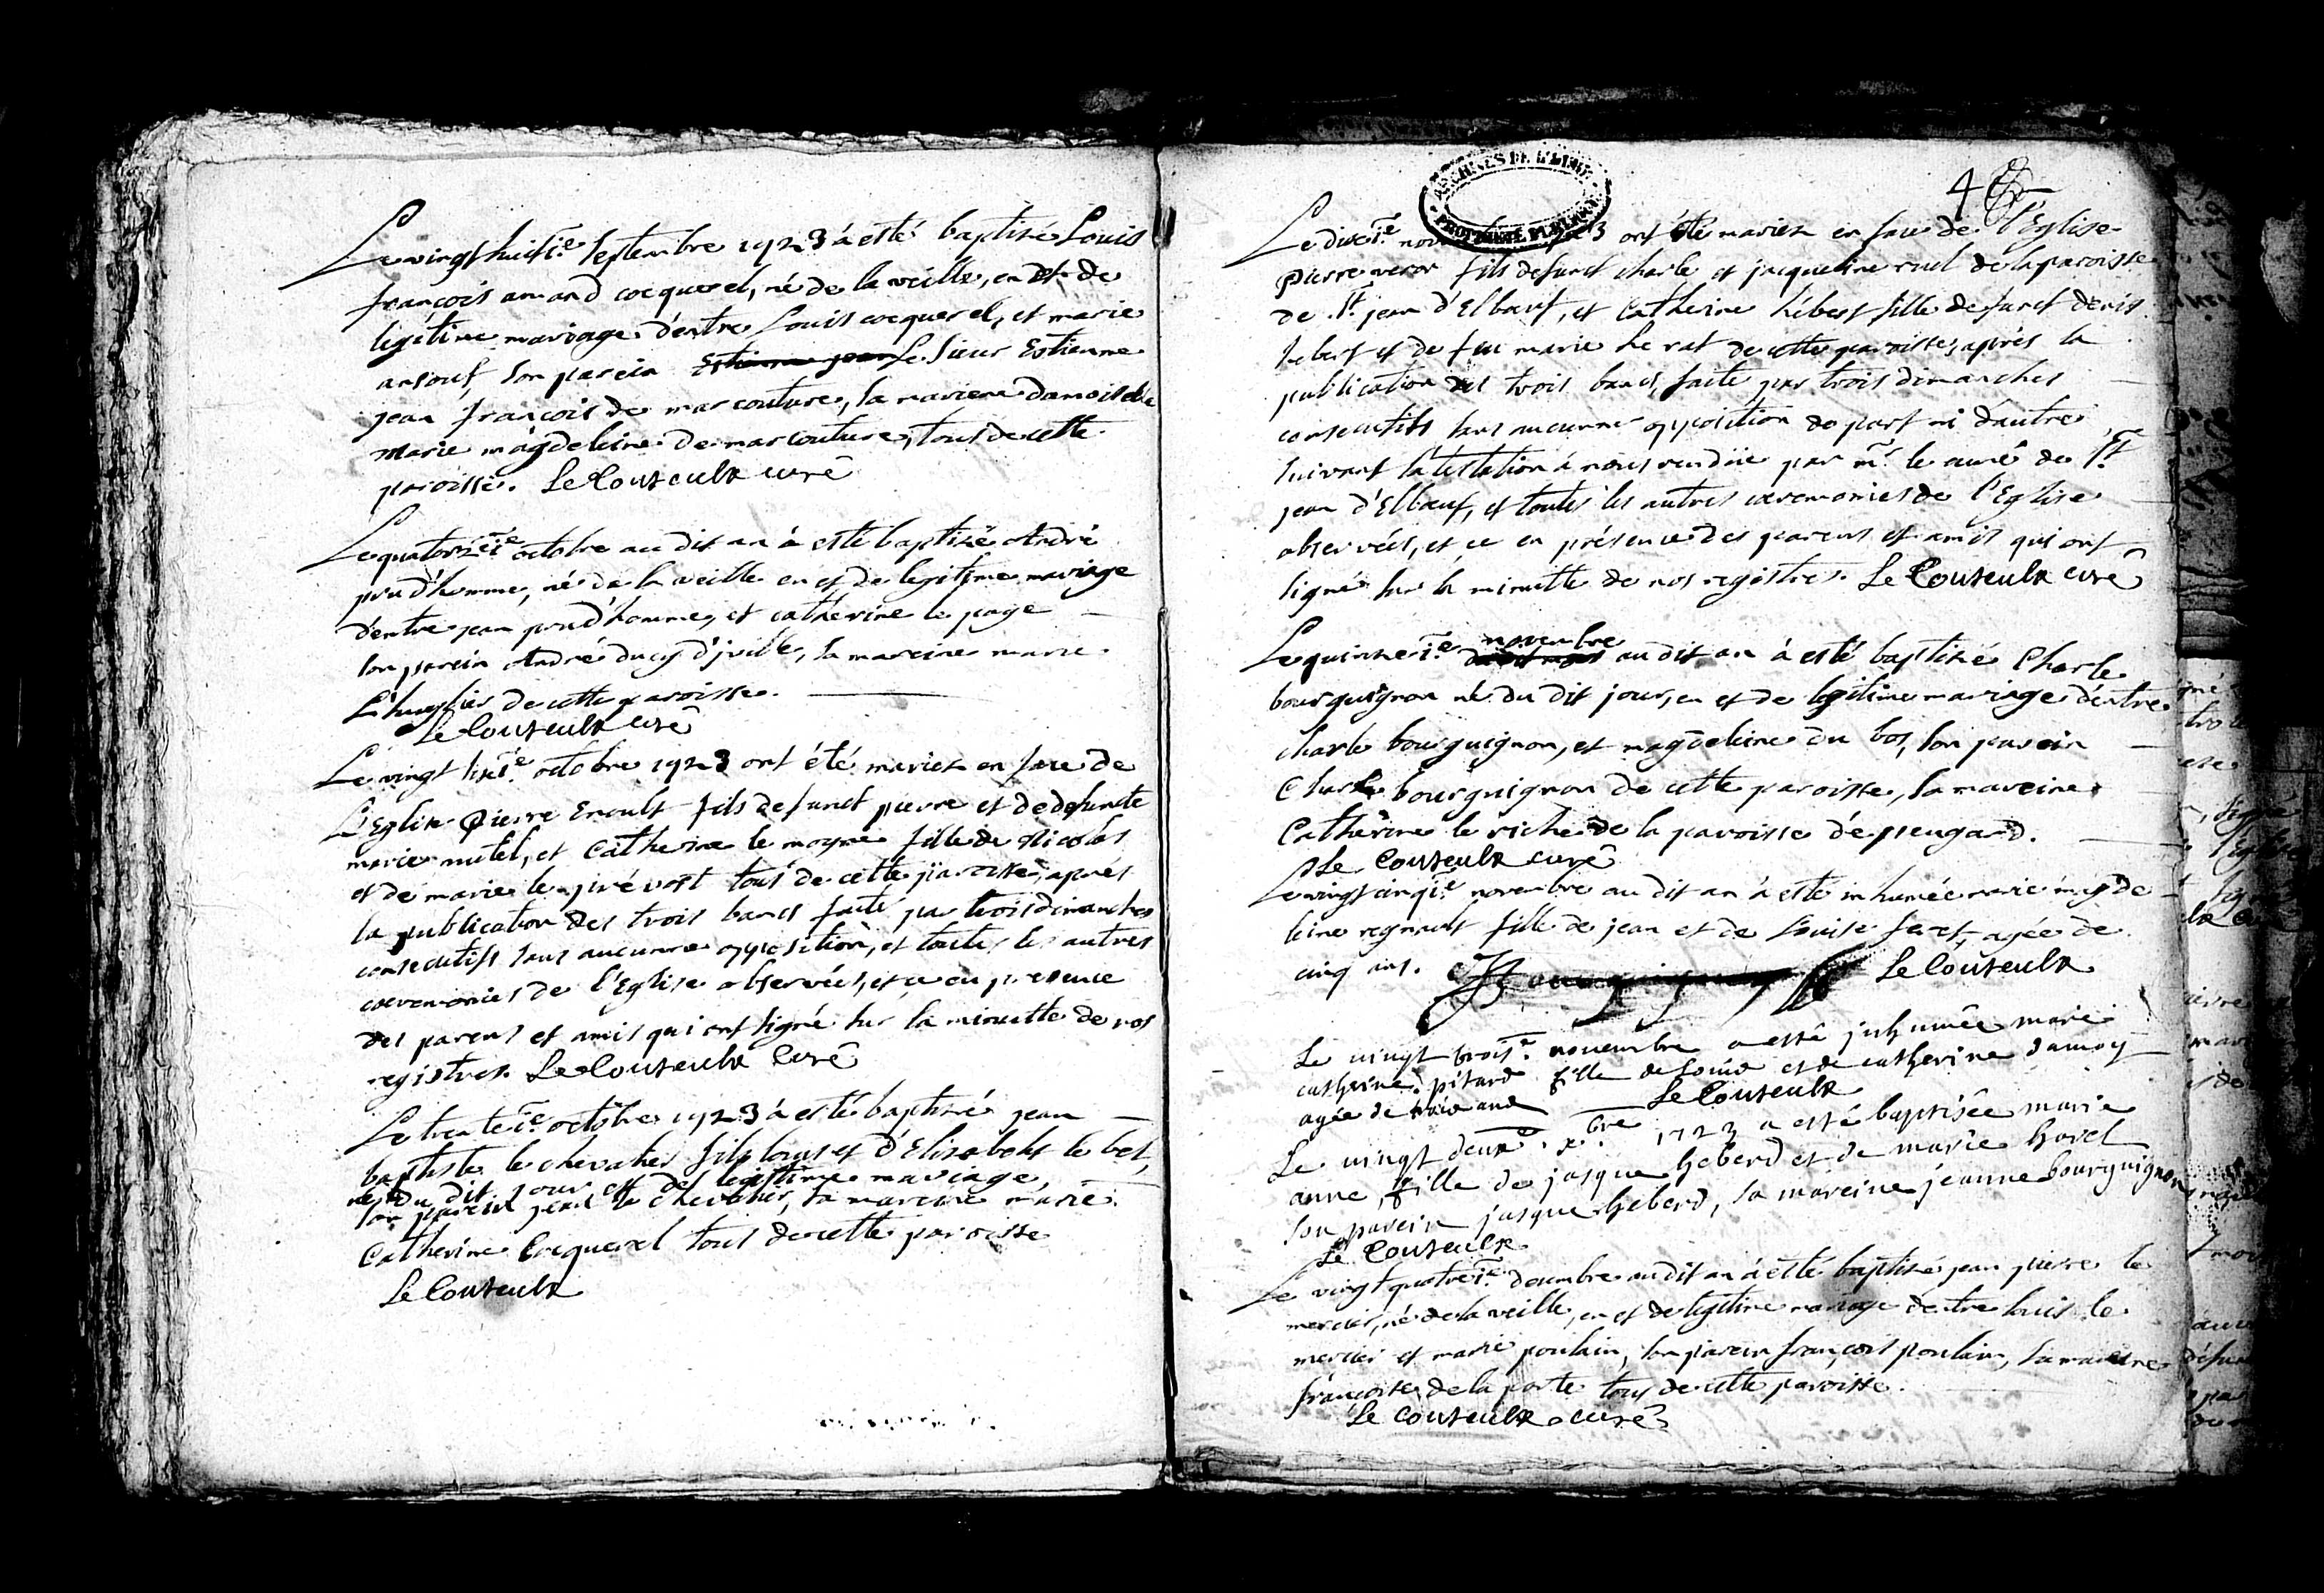 Le vingt huiti.e septembre 1723 à esté baptisé Louis
françois amand cocquerel, né de la veille, en et de
legitime mariage d'entre Louis cocquerel, et marie
ansout, son parein Estienne jean le sieur Estienne
jean françois de marcouture, sa mareine damoiselle
marie magdeleine de marcouture, tous de cette
paroisse. Le Couteulx curé
Le quatorzi.e octobre au dit an à esté baptisé André
prud'homme, né de la veille en et de legitime mariage
d'entre jean prud'homme, et catherine le page
son parein André ducy d'jville, sa mareine marie
L'huglier de cette paroisse.
Le Couteulx curé
Le vingt sixi.e octobre 1723 ont été mariez en face de
L'Eglise Pierre Enoult fils defunct pierre et de defuncte
marie mutel, et Catherine le moyne fille de Nicolas
et de marie le prévost tous de cette paroisse, aprés
la publication des trois bancs faite par trois dimanches
consecutifs sans aucunne opposition, et toutes les autres
ceremonies de l'Eglise observées, et ce en presence
des parens et amis qui ont signé sur la minutte de nos
registres. Le Couteulx Curé
Le trenti.e octobre 1723 à esté baptisé jean
baptiste le chevalier fils louis et d'Elisabeht le bet,
né du dit jour et de legitime mariage,
son parein jean le chevalier, sa mareine marie
Catherine Cocquerel tous de cette paroisse
Le Couteulx
Le dixi.e 3 ont été mariez en face de l'Eglise
Pierre fils defunct charle et jacqueline ruel de la paroisse
de St. jean d'Elbœuf, et Catherine hébert fille defunct denis
hebert et de feu marie Le rat de cette paroisse, aprés la
publication des trois bancs, faite par trois dimanches
consecutifs sans aucunne opposition de part ni d'autre,
suivant l'atestation à nous rendüe par mr. le curé de St.
jean d'Elbœuf, et toutes les autres ceremonies de l'Eglise
observées, et ce en présence des parens et amis qui ont
signé sur la minutte de nos registres. Le Couteulx curé
novembre
Le quinzei.e au dit an à esté baptisé Charle
bourguignon né du dit jour, en et de legitime mariage d'entre
charle bourguignon, et magdeleine du bos, son parein
Charle bourguignon de cette paroisse, sa mareine
Catherine le riche de la paroisse d'épreugard.
Le Couteulx curé
Le vingt cinqi.e novembre au dit an à esté inhumée marie magde
leine regnault fille de jean et de Louise feret, agée de
cinq ans. Le Couteulx
Le vingt trois.e nouembre a esté juhumée marie
catherine pitard fille de Louis et de catherine damoy
agée de trois ans Le Couteulx
Le uingt deux.e xbre 1723 a esté baptisée marie
anne, fille de jasque heberd et de marie havel
son parein jasque heberd, sa mareine jéanne bourguignon
Le Couteulx
Le vingt quatrei.e decembre au dit an à esté baptisé jean pierre le
mercier, né de la veille, en et de legitime mariage d'entre louis le
mercier et marie poulain, son parein françois poulain, sa mareine
françoise de la porte tous de cette paroisse.
Le Couteulx curé